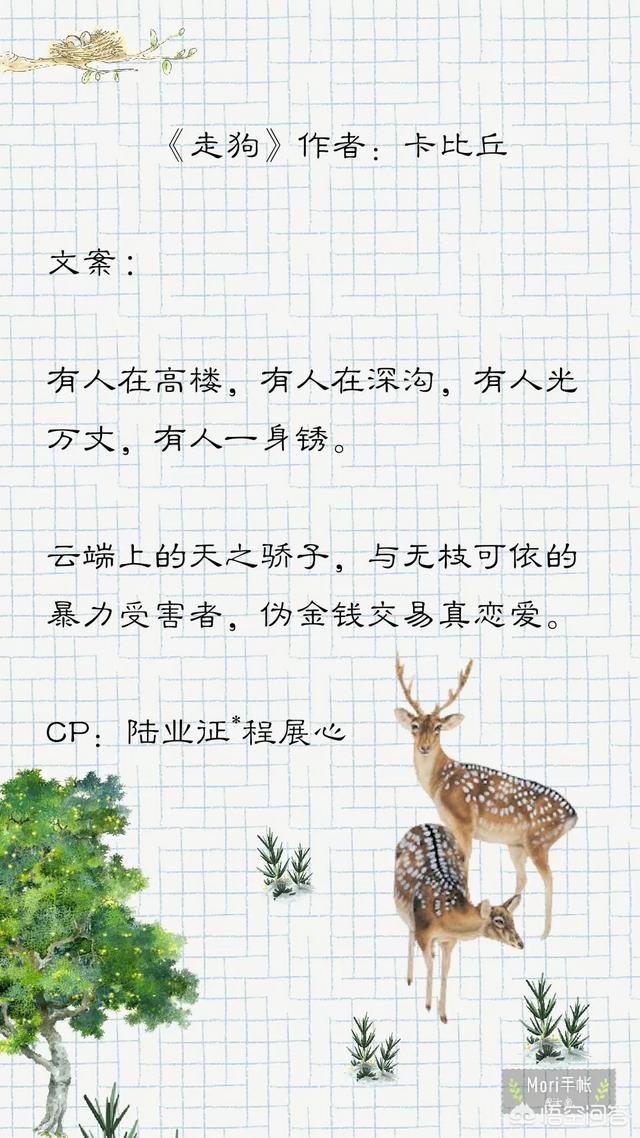 《走狗》作者：卡比丘
文案：
有人在高楼，有人在深沟，有人光
万丈，有人一身锈。
云端上的天之骄子，与无枝可依的
暴力受害者，伪金钱交易真恋爱。
CP：陆业征*程展心
Mori手帐
悟空问答